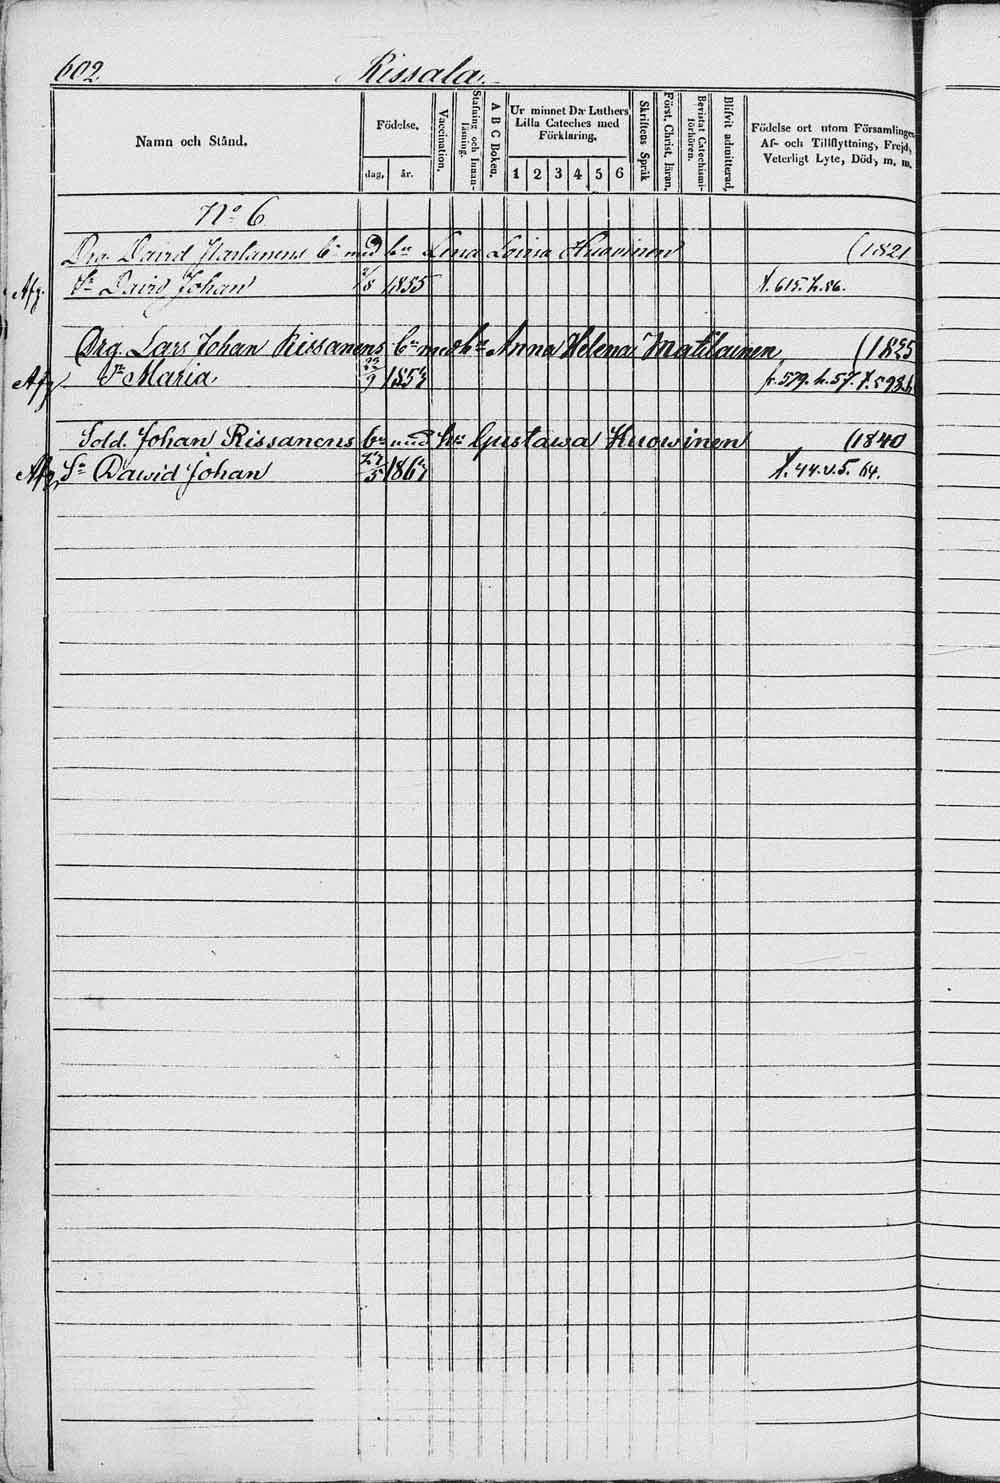 602. Rissala.
Namn och Stånd.
Födelse,
dag, år.
Vaccination.
Stafning och Innanläsning.
A B C Boken.
Ur minnet D:r Luthers Lilla Cateches med Förklaring.
1 2 3 4 5 6
Skriftens Språk
Först. Christ. läran.
Bevistat Catechismi-förhören.
Blifvit admitterad,
Födelse ort utom Församlingen, Af- och Tillflyttning, Frejd, Veterligt Lyte, Död, m. m.
No 6
Drg. David b:n med h:u Lena Lovisa (1821
Afg. Sn David Johan 2/8 1855 t. 615. h. 56.
Drg. Lars Johan Rissanens b:n med h:u Anna Helena Matilainen (1825
Afg Dr Maria 22/9 1857 fr. 579. h. 57. t. 598. h
Sold. Johan Rissanens b:n med h:u Gustawa Kuowinen (1840
Afg. Sn Dawid Johan 27/5 1867 t. 44. v. 5. 64.